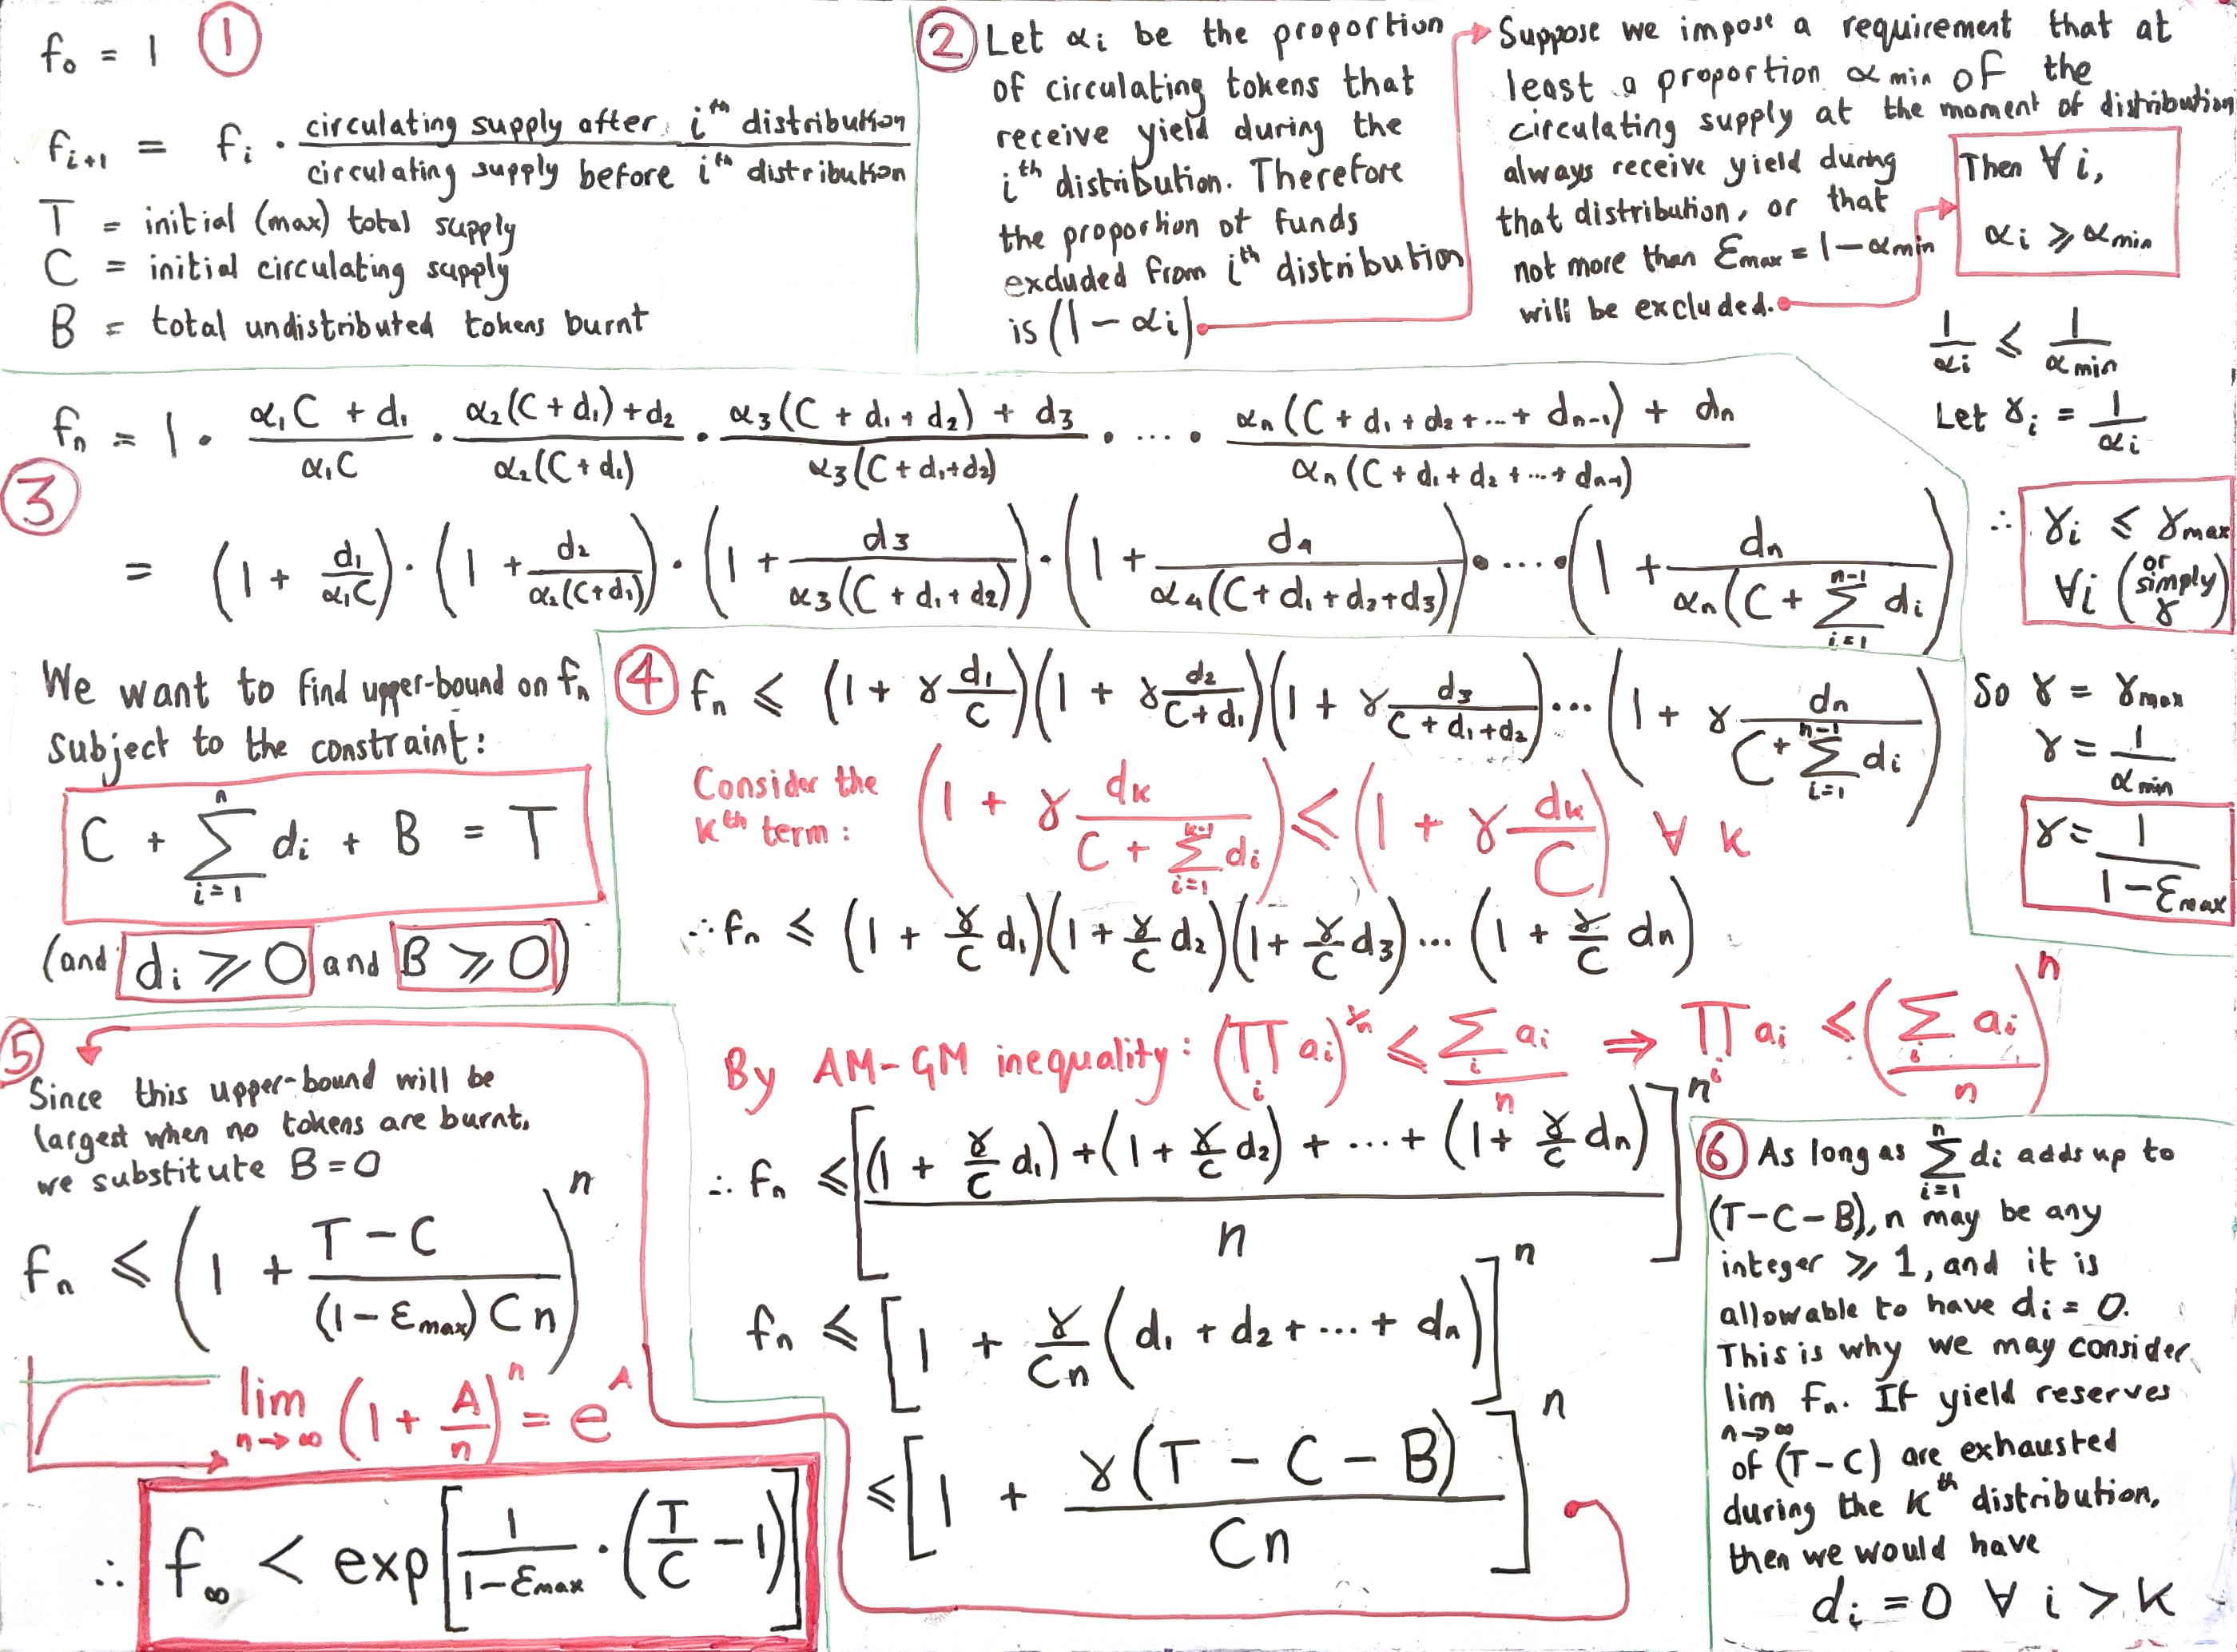 ①
f₀ = 1
fᵢ₊₁ = fᵢ · (circulating supply after iᵗʰ distribution) / (circulating supply before iᵗʰ distribution)
T = initial (max) total supply
C = initial circulating supply
B = total undistributed tokens burnt
②
Let αᵢ be the proportion
of circulating tokens that
receive yield during the
iᵗʰ distribution. Therefore
the proportion of funds
excluded from iᵗʰ distribution
is (1 − αᵢ)
Suppose we impose a requirement that at
least a proportion α min of the
circulating supply at the moment of distribution
always receive yield during
that distribution, or that
not more than Ɛmax = 1 − αmin
will be excluded.
Then ∀ i,
αᵢ ⩾ αmin
1/αᵢ ⩽ 1/αmin
Let γᵢ = 1/αᵢ
∴ γᵢ ⩽ γmax
∀i (or simply γ)
So γ = γmax
γ = 1/αmin
γ = 1/(1 − Ɛmax)
③
fₙ = 1 · (α₁C + d₁)/(α₁C) · (α₂(C + d₁) + d₂)/(α₂(C + d₁)) · (α₃(C + d₁ + d₂) + d₃)/(α₃(C + d₁ + d₂)) · .... · (αₙ(C + d₁ + d₂ + ... + dₙ₋₁) + dₙ)/(αₙ(C + d₁ + d₂ + ... + dₙ₋₁))
= (1 + d₁/(α₁C)) · (1 + d₂/(α₂(C + d₁))) · (1 + d₃/(α₃(C + d₁ + d₂))) · (1 + d₄/(α₄(C + d₁ + d₂ + d₃))) · .... · (1 + dₙ/(αₙ(C + Σᵢ₌₁ⁿ⁻¹ dᵢ))
We want to find upper-bound on fₙ
subject to the constraint:
C + Σᵢ₌₁ⁿ dᵢ + B = T
(and dᵢ ⩾ 0 and B ⩾ 0)
④
fₙ ⩽ (1 + γ d₁/C)(1 + γ d₂/(C + d₁))(1 + γ d₃/(C + d₁ + d₂)) ... (1 + γ dₙ/(C + Σᵢ₌₁ⁿ⁻¹ dᵢ))
Consider the
kᵗʰ term :
(1 + γ dₖ/(C + Σᵢ₌₁ᵏ⁻¹ dᵢ)) ⩽ (1 + γ dₖ/C) ∀ k
∴ fₙ ⩽ (1 + γ/C d₁)(1 + γ/C d₂)(1 + γ/C d₃) ... (1 + γ/C dₙ)
By AM-GM inequality: (∏ᵢ aᵢ)^(1/n) ⩽ (Σᵢ aᵢ)/n ⇒ ∏ᵢ aᵢ ⩽ ((Σᵢ aᵢ)/n)ⁿ
∴ fₙ ⩽ [((1 + γ/C d₁) + (1 + γ/C d₂) + ... + (1 + γ/C dₙ))/n]ⁿ
fₙ ⩽ [1 + γ/(Cn) (d₁ + d₂ + ... + dₙ)]ⁿ
⩽ [1 + γ(T − C − B)/(Cn)]ⁿ
⑤
Since this upper-bound will be
largest when no tokens are burnt,
we substitute B = 0
fₙ ⩽ (1 + (T − C)/((1 − Ɛmax) Cn))ⁿ
lim n→∞ (1 + A/n)ⁿ = eᴬ
∴ f∞ < exp[1/(1 − Ɛmax) · (T/C − 1)]
⑥
As long as Σᵢ₌₁ⁿ dᵢ adds up to
(T − C − B), n may be any
integer ⩾ 1, and it is
allowable to have dᵢ = 0.
This is why we may consider
lim n→∞ fₙ. If yield reserves
of (T − C) are exhausted
during the kᵗʰ distribution,
then we would have
dᵢ = 0 ∀ i > k